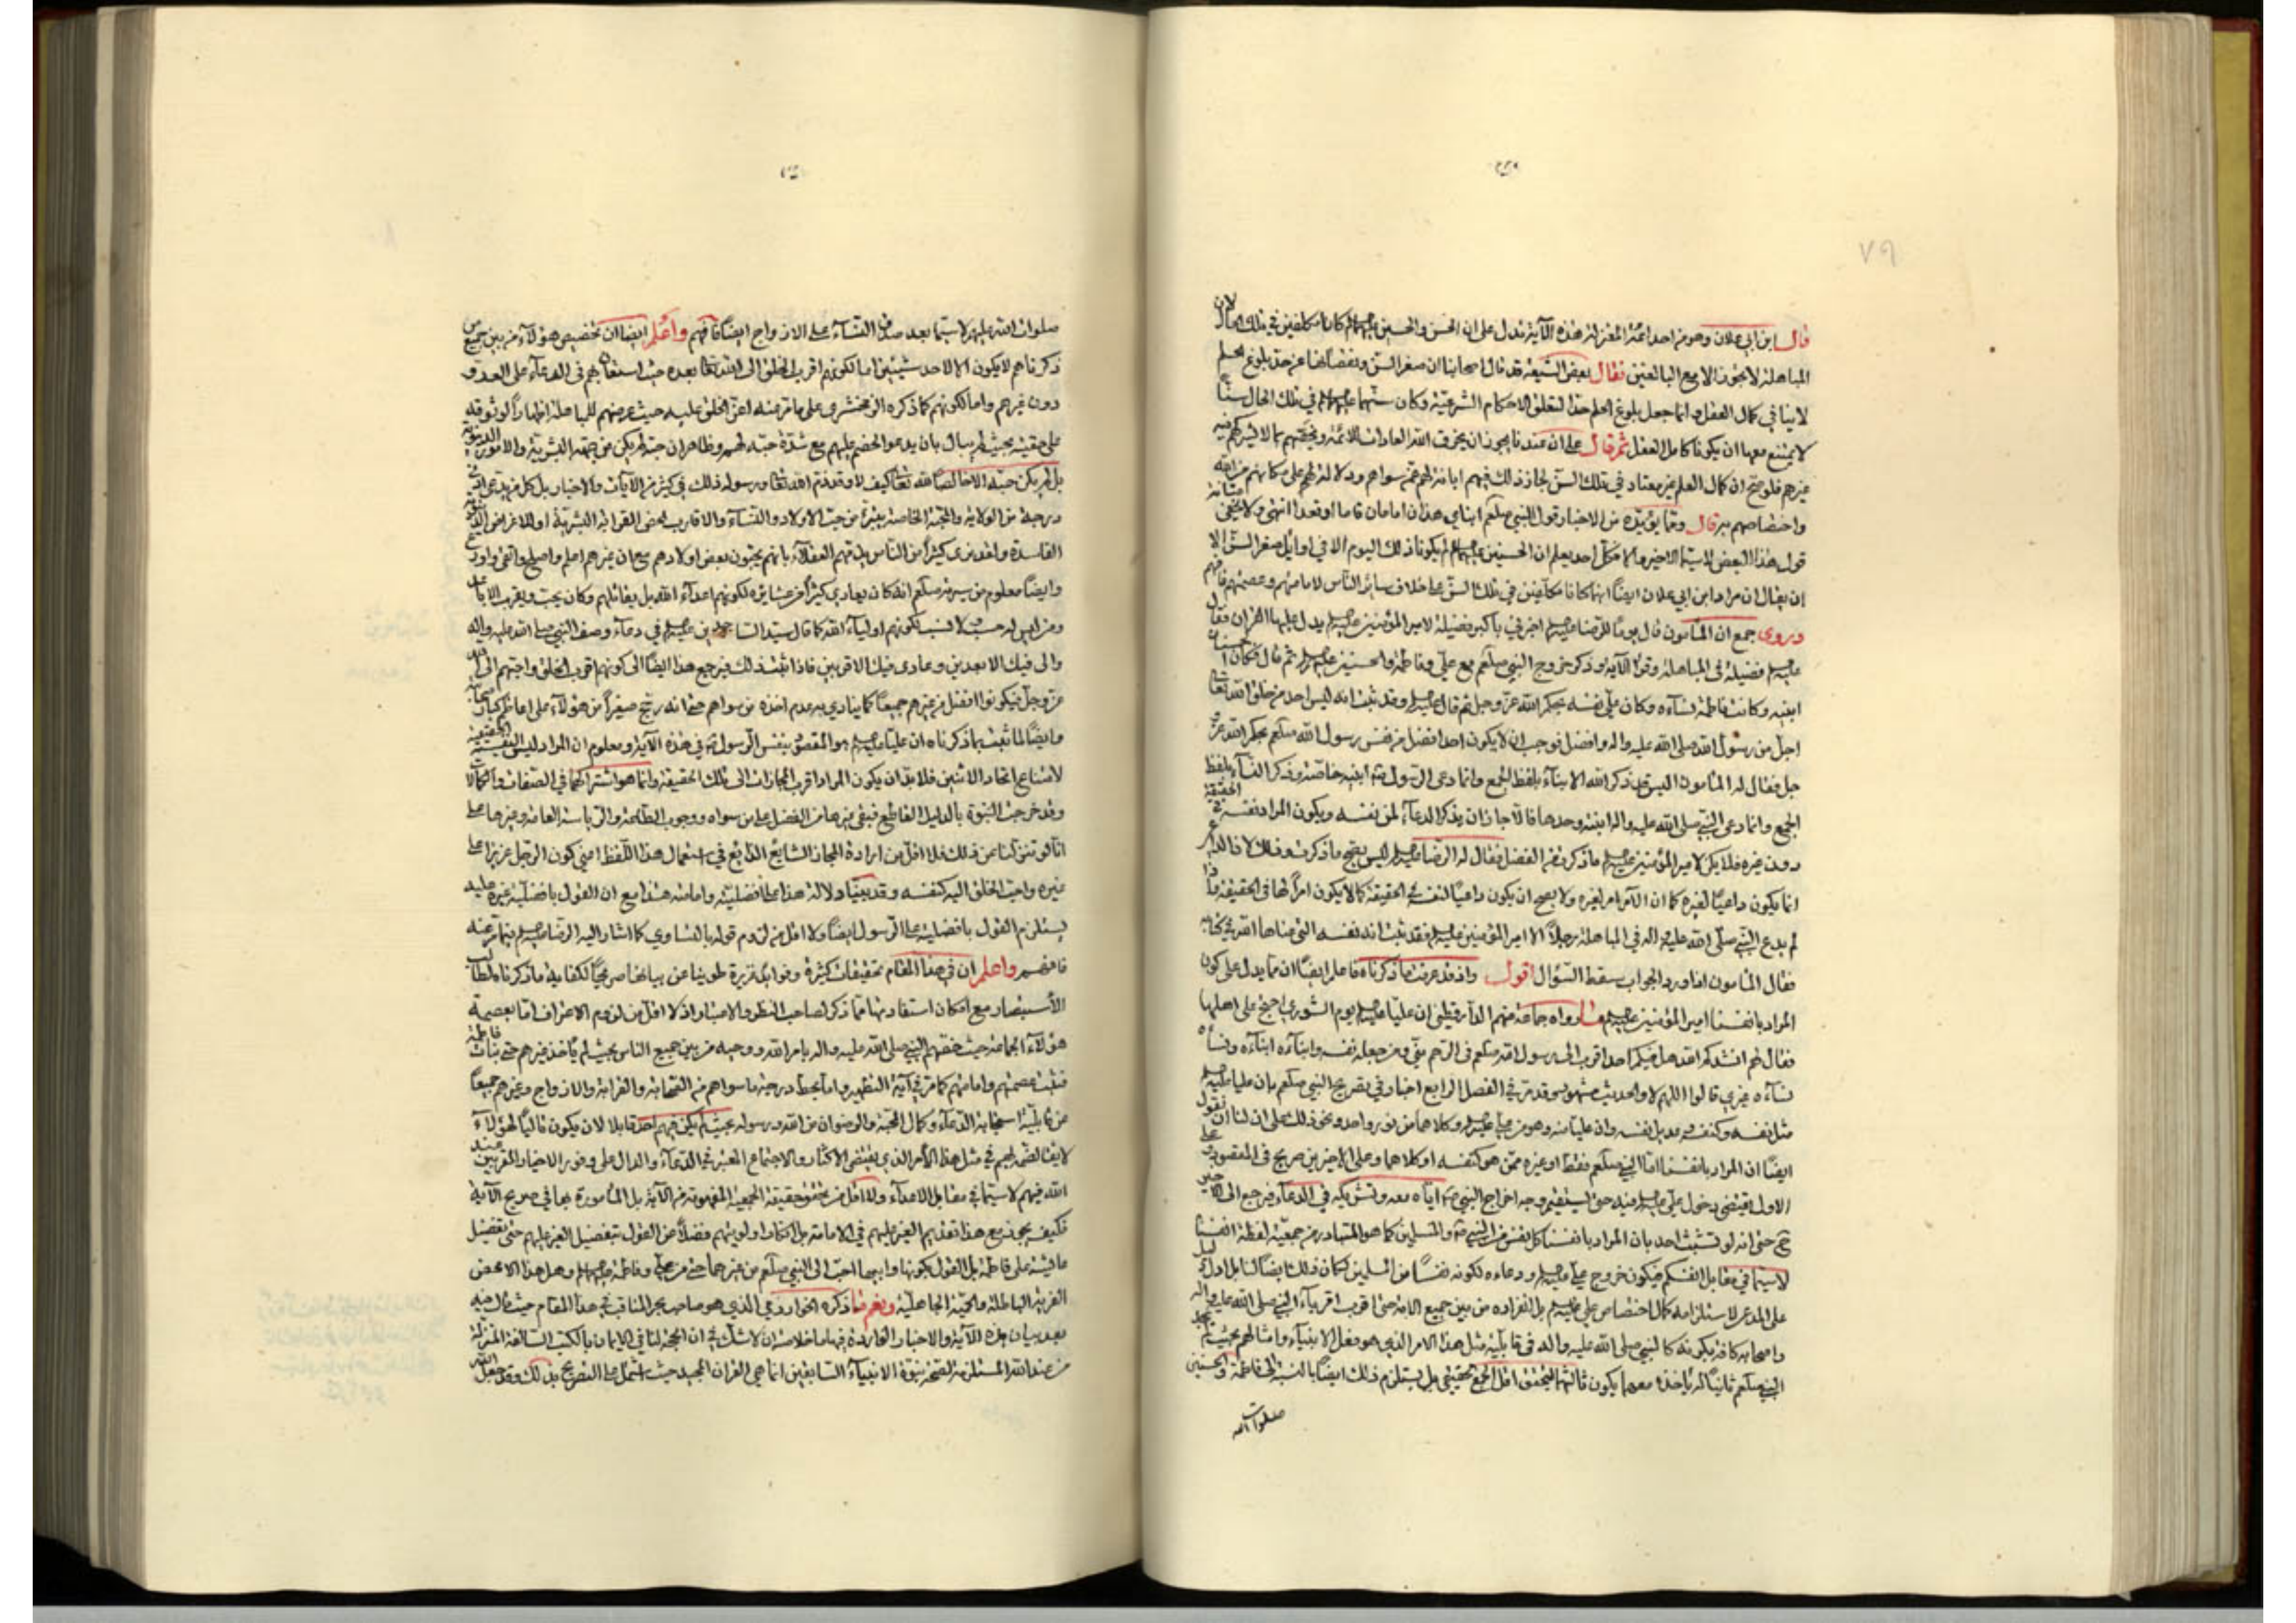 ٧٩
قال ابن ابي علان وهو من احد ائمة المعتزلة هذه الآية تدل على ان الحسن والحسين عليهما السلم كانا مكلفين في تلك الحال لان
المباهلة لا يجوز الا مع البالغين فقال بعض الشيعة قد قال اصحابنا ان صغر السن ونقصانها عن حد بلوغ الحلم
لا ينافي كمال العقل وانما جعل بلوغ الحلم حدا لتعلق الاحكام الشرعية وكان سنهما عليهما السلم في تلك الحال سنا
لا يمتنع معها ان يكونا كامل العقل ثم قال على ان عندنا يجوز ان يخرق الله العادات للائمة ويخصهم بما لا يشركهم فيه
غيرهم فلو صح ان كمال العقل غير معتاد في تلك السن لجاز ذلك فيهم ابانة لهم عمن سواهم ودلالة لهم على مكانهم من الله
واختصاصهم به قال ومما يؤيده من الاخبار قول النبي صلعم ابناي هذان امامان قاما او قعدا انتهى ولا يخفى متانة
قول هذا البعض لاسيما الاخير والا فكل احد يعلم ان الحسنين عليهما السلم لم يكونا ذلك اليوم الا في اوايل صغر السن الا
ان يقال ان مراد ابن ابي علان ايضا انهما كانا مكلفين في تلك السن على خلاف ساير الناس لامامتهم وعصمتهم فافهم
وروى جمع ان المأمون قال يوما للرضا عليه السلم اخبرني باكبر فضيلة لامير المؤمنين عليه السلم يدل عليها القران فقال
عليه السلم فضيلة في المباهلة وقرأ الآية وذكر خروج النبي صلعم مع علي وفاطمة والحسنين عليهم السلم ثم قال فكان الحسنان
ابنيه وكانت فاطمة نساءه وكان علي نفسه بحكم الله عز وجل ثم قال عليه السلم وقد ثبت انه ليس احد من خلق الله تعالى
اجل من رسول الله صلى الله عليه واله وافضل فوجب ان لا يكون احد افضل من نفس رسول الله صلعم بحكم الله عز و
جل فقال له المأمون اليس قد ذكر الله الابناء بلفظ الجمع وانما دعى الرسول ص ابنيه خاصة وذكر النساء بلفظ
الجمع وانما دعى النبي صلى الله عليه واله ابنته وحدها فالا جاز ان يذكر الدعاء لمن نفسه ويكون المراد نفسه في الحقيقة
دون غيره فلا يكن لامير المؤمنين عليه السلم ما ذكرت من الفضل فقال له الرضا عليه السلم ليس يصح ما ذكرت وذلك لان الداعي
انما يكون داعيا لغيره كما ان الآمر امر لغيره ولا يصح ان يكون داعيا لنفسه في الحقيقة كما لا يكون امرا لها في الحقيقة واذا
لم يدع النبي صلى الله عليه واله في المباهلة رجلا الا امير المؤمنين عليه السلم فقد ثبت انه نفسه التي عناها الله في كتابه
فقال المأمون اذا ورد الجواب سقط السؤال اقول واذ قد عرفت ما ذكرناه فاعلم ايضا ان مما يدل على كون
المراد بانفسنا امير المؤمنين عليه السلم ما رواه جماعة منهم الدارقطني ان عليا عليه السلم يوم الشورى احتج على اهلها
فقال لهم انشدكم الله هل فيكم احد اقرب الى رسول الله صلعم في الرحم مني ومن جعله نفسه وابناءه ابناءه ونساءه
نساءه غيري قالوا اللهم لا والحديث مشهور وقد مر في الفصل الرابع اخبار في تصريح النبي صلعم بان عليا عليه السلم
مثل نفسه وكنفسه وعديل نفسه وان عليا منه وهو من علي عليه السلم وكلاهما من نور واحد ونحو ذلك على ان لنا ان نقول
ايضا ان المراد بانفسنا اما النبي صلعم فقط او غيره ممن هو كنفسه او كلاهما وعلى الاخيرين صريح في المقصود وعلى
الاول يقتضي دخول علي عليه السلم فيه حتى يستقيم وجه اخراج النبي ص اياه معه وتشريكه في الدعاء فيرجع الى الاخير
حتى انه لو تشبث احد بان المراد بانفسنا كل نفس من النبي ص والمسلمين كما هو المتبادر من جمعية لفظة انفسنا
لاسيما في مقابل انفسكم فيكون خروج علي عليه السلم ودعاءه لكونه نفسا من المسلمين لكان ذلك ايضا لنا بل ادل دليل
على المدعى لاستلزامه كمال اختصاص علي عليه السلم بل انفراده من بين جميع الامة حتى اقرب اقرباء النبي صلى الله عليه واله
واصحابه كافة بكونه كالنبي صلى الله عليه واله في قابلية مثل هذا الامر الذي هو فعل الانبياء وامثالهم بحيث لم يجد
النبي صلعم ثانيا له يأخذه معهما يكون ثالثهما ليتحقق اقل الجمع حقيقي بل يستلزم ذلك ايضا بالنسبة الى فاطمة والحسنين
صلوات الله
صلوات الله عليهم لاسيما بعد صدق النساء على الازواج ايضا فافهم واعلم ايضا ان تخصيص هؤلاء من بين جميع من
ذكرناهم لا يكون الا لاحد شيئين اما لكونهم اقرب الخلق الى الله تعالى بعده حيث استعان بهم في الدعاء على العدو
دون غيرهم واما لكونهم كما ذكره الزمخشري على ما مر عنه اعز الخلق عليه حيث عرضهم للمباهلة اظهارا لوثوقه
على حقيته بحيث لم يبال بان يدعو الخصم عليهم مع شدة حبه لهم وظاهر ان حبه لم يكن من جهة البشرية والامور الدنيوية
بل لم يكن حبه الا خالصا لله تعالى كيف لا وقد ذم الله تعالى ورسوله ذلك في كثير من الآيات والاخبار بل كل من يدعي ادنى
درجة من الولاية والمحبة الخاصة يتبرء من حب الاولاد والنساء والاقارب لمحض القرابة البشرية او للاغراض الدنيوية
الفاسدة ولقد نرى كثيرا من الناس يذمهم العقلاء بانهم يحبون بعض اولادهم مع ان غيرهم اعلم واصلح واتقى واورع
وايضا معلوم من سيرته صلعم انه كان يعادي كثيرا من عشايره لكونهم اعداء الله بل يقاتلهم وكان يحب ويقرب الاباعد
ومن ليس له حسب ولا نسب لكونهم اولياء الله كما قال سيد الساجدين عليه السلم في دعاء وصف النبي صلى الله عليه واله
ووالى فيك الابعدين وعادى فيك الاقربين فاذا ثبت ذلك فيرجع هذا ايضا الى كونهم اقرب الخلق واحبهم الى الله
عز وجل فيكونوا افضل من غيرهم جميعا كما ينادي به عدم اخذه من سواهم حتى انه رجح صغيرا من هؤلاء على اعاظم كبار صحابته
وايضا لما ثبت بما ذكرناه ان عليا عليه السلم هو المقصود بنفس الرسول ص في هذه الآية ومعلوم ان المراد ليس النفسية الحقيقية
لامتناع اتحاد الاثنين فلابد ان يكون المراد اقرب المجازات الى تلك الحقيقة وانما هو اشتراكهما في الصفات والكمالات
وقد خرجت النبوة بالدليل القاطع فبقي غيرها من الفضل على من سواه ووجوب الطاعة والرياسة العامة وغيرها على
انا لو تنزلنا عن ذلك فلا اقل من ارادة المجاز الشايع الذايع في استعمال هذا اللفظ اعني كون الرجل عزيزا على
غيره واحب الخلق اليه كنفسه وقد بينا دلالة هذا على افضليته وامامته هذا مع ان القول بافضلية غيره عليه
يستلزم القول بافضليته على الرسول ايضا ولا اقل من لزوم قوله بالتساوي كما اشار اليه الرضا عليه السلم فيما مر عنه
فافهم واعلم ان في هذا المقام تحقيقات كثيرة وفوايد غزيرة طوينا عن بيانها صريحا لكفاية ما ذكرنا لطالب
الاستبصار مع امكان استفادتها مما ذكر لصاحب النظر والاعتبار اذ لا اقل من لزوم الاعتراف اما بعصمة
هؤلاء الجماعة حيث خصهم النبي صلى الله عليه واله بامر الله ووحيه من بين جميع الناس بحيث لم يأخذ غيرهم حتى بنات فاطمة
فثبت عصمتهم وامامتهم كما مر في آية التطهير واما بحط درجة ما سواهم من الصحابة والقرابة والازواج وغيرهم جميعا
عن قابلية استجابة الدعاء وكمال المحبة والرضوان من الله ورسوله بحيث لم يكن فيهم احد قابلا لان يكون تاليا لهؤلاء
لايقا لضمه بهم في مثل هذا الأمر الذي يقتضي الاكثار والاجتماع المعتبر في الدعاء والدال على وفور الاخيار المقربين عند
الله فيهم لاسيما في مقابل الاعداء ولا اقل من تحقق حقيقة الجمعية المفهومة من الآية بل المأمورة بها في صريح الآية
فكيف يجوز مع هذا تقديم الغير عليهم في الامامة بل انكار اولويتهم فضلا عن القول بتفضيل الغير عليهم حتى تفضيل
عايشة على فاطمة بل القول بكونها وابيها احب الى النبي صلعم من غيرهما حتى من علي وفاطمة عليهما السلم وهل هذا الا محض
الفرية الباطلة والحمية الجاهلية ونعم ما ذكره الخوارزمي الذي هو صاحب المناقب في هذا المقام حيث قال فيه
بعد بيان هذه الآية والاخبار الواردة فيها ما خلاصته ان لا شك في ان الحجة لنا في الايمان بالكتب السالفة المنزلة
من عند الله المستلزمة لصحة نبوة الانبياء السابقين انما هي القران المجيد حيث اشتمل على التصريح بذلك وقد جعل الله